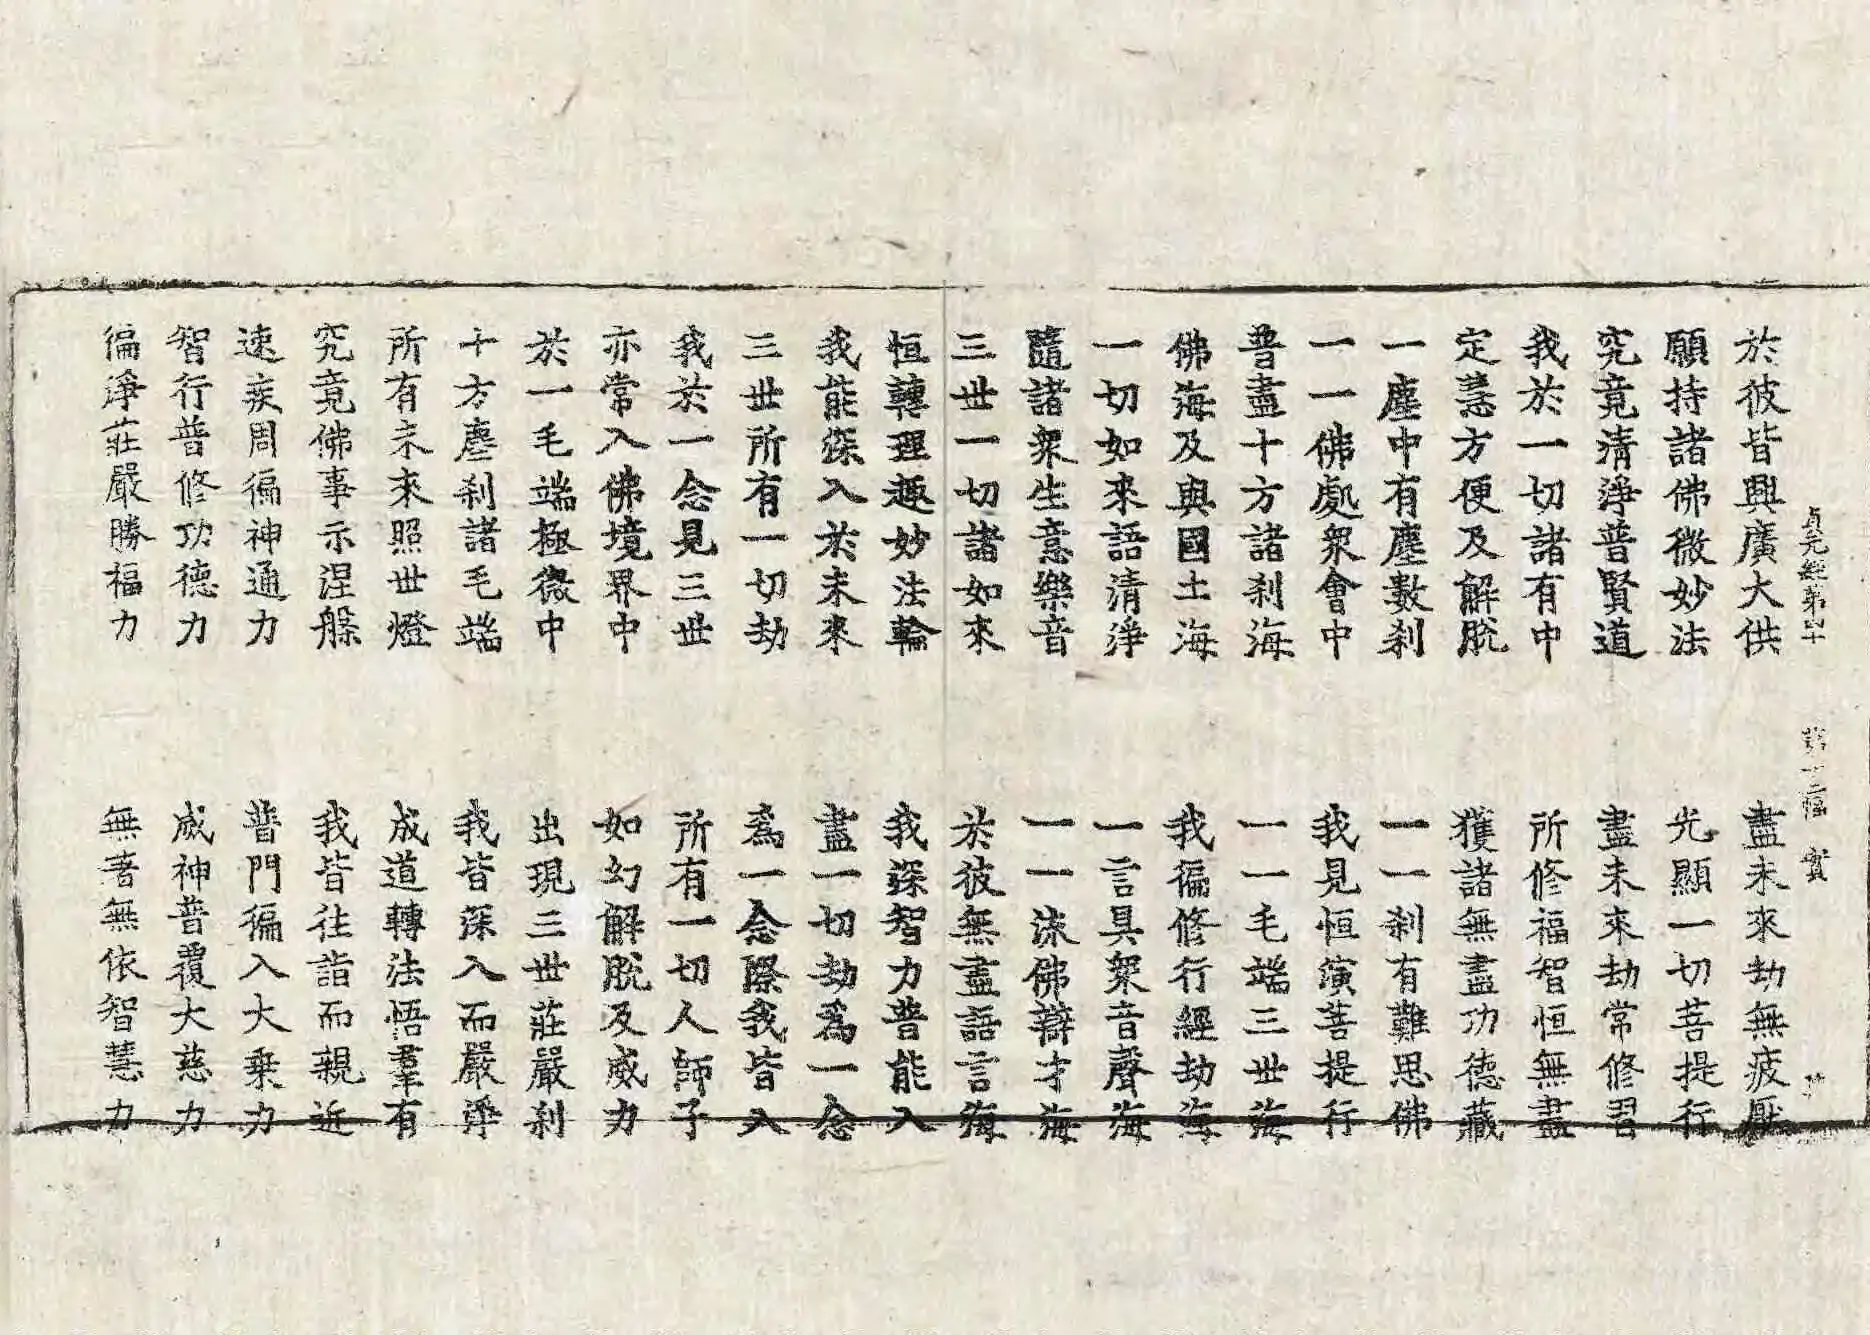 貞元經第四十 第十三幅 實
於彼皆興廣大供 盡未來劫無疲厭
願持諸佛微妙法 光顯一切菩提行
究竟清淨普賢道 盡未來劫常修習
我於一切諸有中 所修福智恒無盡
定慧方便及解脫 獲諸無盡功德藏
一塵中有塵數刹 一一刹有難思佛
一一佛處衆會中 我見恒演菩提行
普盡十方諸刹海 一一毛端三世海
佛海及與國土海 我徧修行經劫海
一切如來語清淨 一言具衆音聲海
隨諸衆生意樂音 一一流佛辯才海
三世一切諸如來 於彼無盡語言海
恒轉理趣妙法輪 我深智力普能入
我能深入於未來 盡一切劫爲一念
三世所有一切劫 爲一念際我皆入
我於一念見三世 所有一切人師子
亦常入佛境界中 如幻解脫及威力
於一毛端極微中 出現三世莊嚴刹
十方塵刹諸毛端 我皆深入而嚴淨
所有未來照世燈 成道轉法悟羣有
究竟佛事示涅槃 我皆往詣而親近
速疾周徧神通力 普門徧入大乘力
智行普修功德力 威神普覆大慈力
徧淨莊嚴勝福力 無著無依智慧力